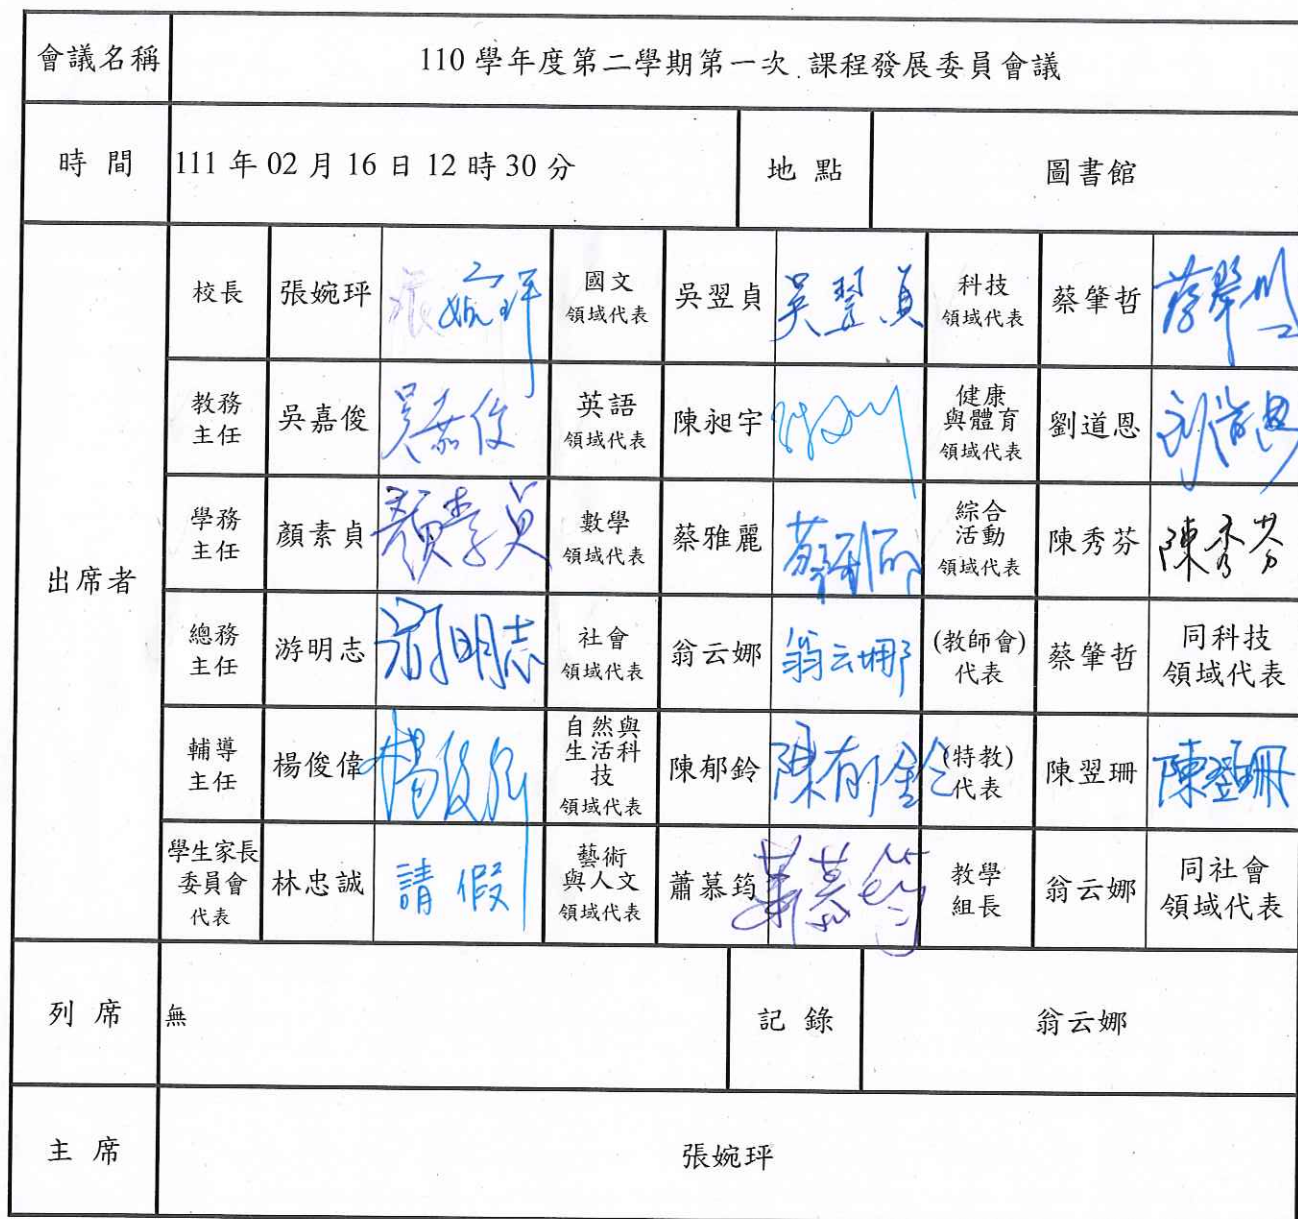 會議名稱
110 學年度第二學期第一次 課程發展委員會議
時 間
111 年 02 月 16 日 12 時 30 分
地 點
圖書館
出席者
校長
張婉玶
張婉玶
國文
領域代表
吳翌貞
吳翌貞
科技
領域代表
蔡肇哲
教務
主任
吳嘉俊
吳嘉俊
英語
領域代表
陳昶宇
健康
與體育
領域代表
劉道恩
刘道恩
學務
主任
顏素貞
顏素貞
數學
領域代表
蔡雅麗
綜合
活動
領域代表
陳秀芬
陳秀芬
總務
主任
游明志
游明志
社會
領域代表
翁云娜
翁云娜
(教師會)
代表
蔡肇哲
同科技
領域代表
輔導
主任
楊俊偉
楊俊偉
自然與
生活科
技
領域代表
陳郁鈴
陳郁鈴
(特教)
代表
陳翌珊
陳翌珊
學生家長
委員會
代表
林忠誠
請假
藝術
與人文
領域代表
蕭慕筠
蕭慕筠
教學
組長
翁云娜
同社會
領域代表
列 席
無
記 錄
翁云娜
主 席
張婉玶